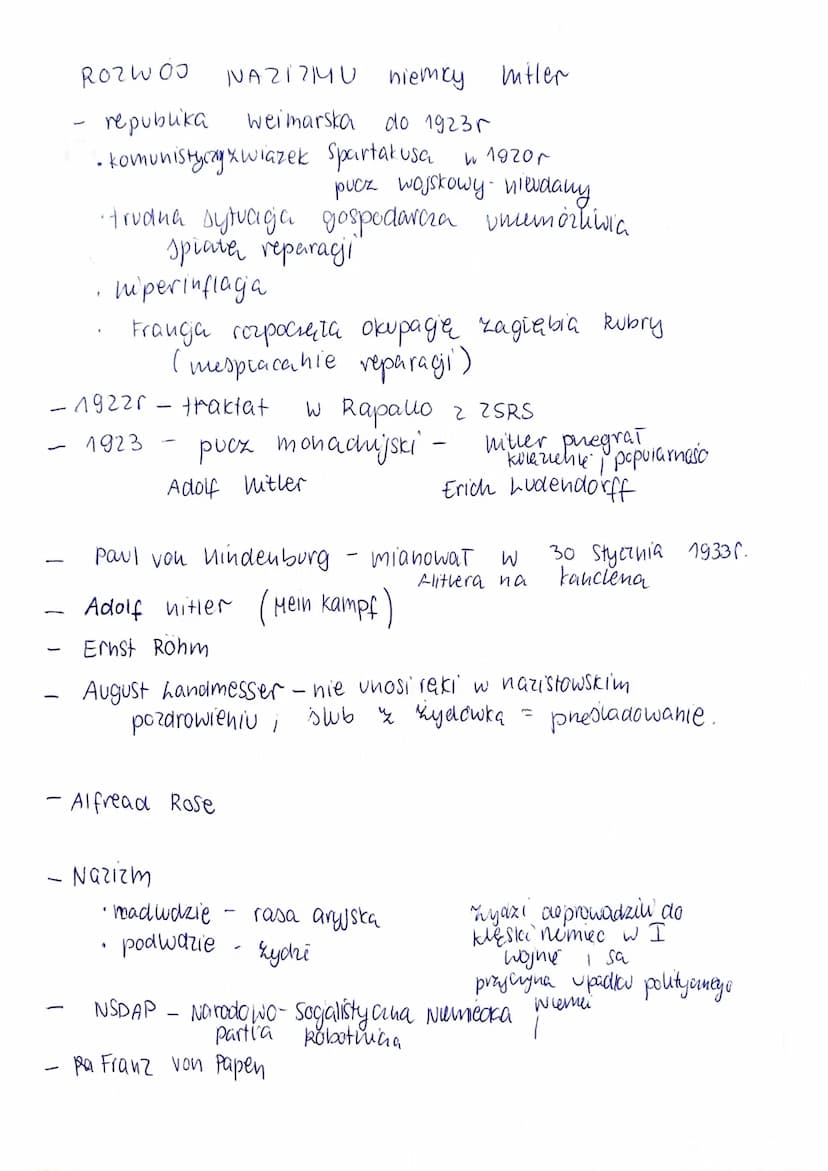 ROZWÓJ NAZIZMU niemcy Hitler
- republika weimarska do 1923r
• komunistyczny związek Spartakusa w 1920r
pucz wojskowy - nieudany
• trudna sytuacja gospodarcza uniemożliwia
spłatę reparacji
• hiperinflacja
• Francja rozpoczęła okupację zagłębia Ruhry
(niespłacanie reparacji)
- 1922r - traktat w Rapallo z ZSRS
- 1923 - pucz monachijski - Hitler przegrał
i popularność
Adolf Hitler Erich Ludendorff
- Paul von Hindenburg - mianował w 30 stycznia 1933r.
Hitlera na kanclerza
- Adolf Hitler (Mein Kampf)
- Ernst Röhm
- August Landmesser - nie unosi ręki w nazistowskim
pozdrowieniu, ślub z żydówką = prześladowanie.
- Alfread Rose
- Nazizm
• nadludzie - rasa aryjska
• podludzie - żydzi
żydzi doprowadzili do
klęski niemiec w I
wojnie i są
przyczyną upadku politycznego
niemiec
- NSDAP - Narodowo-Socjalistyczna Niemiecka
partia Robotnicza
- Franz von Papen